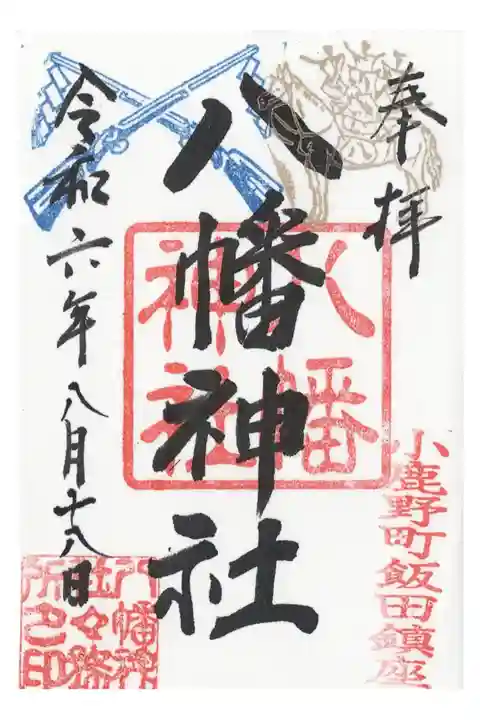 奉拝
八幡神社
八幡
神社
小鹿野町飯田鎮座
令和六年八月十八日
八幡神
社々務
所之印